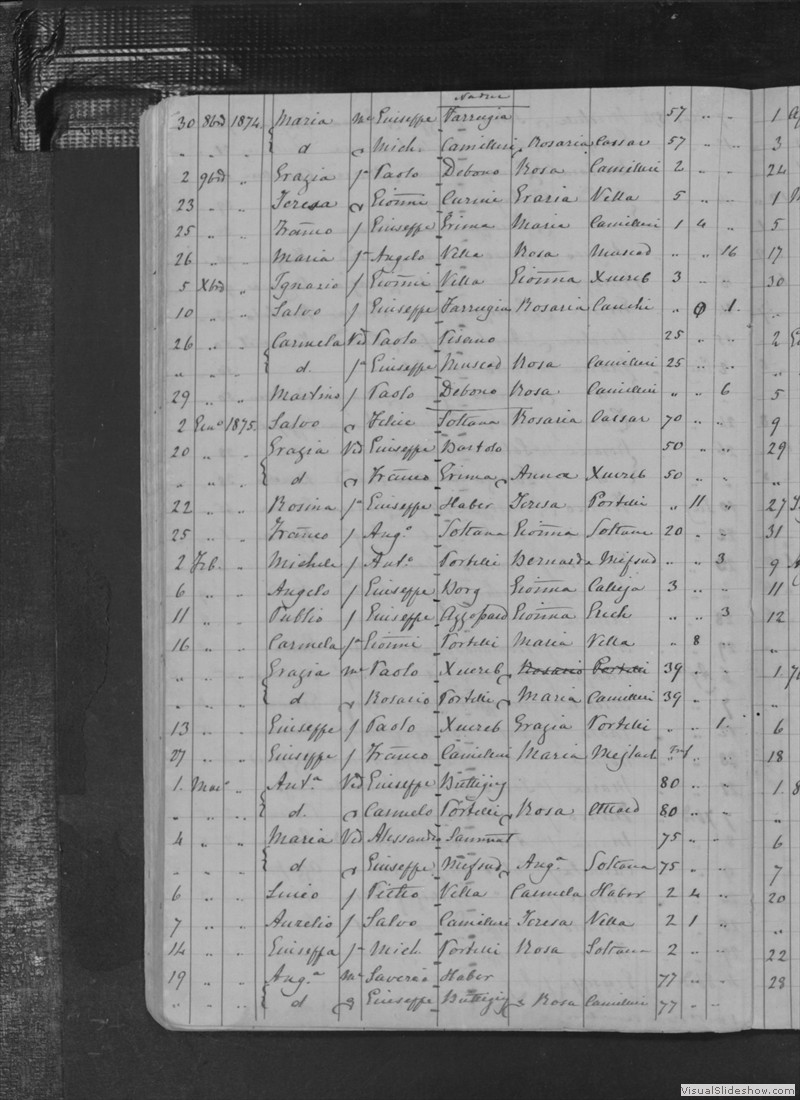 30 8bre 1874 Maria me Giuseppe Farrugia 57 " "
" " " d & Mich. Camilleri & Rosaria Cassar 57 " "
2 9bre " Grazia fa Paolo Debono Rosa Camilleri 2 " "
23 " " Teresa & Gionni Curmi Grazia Vella 5 " "
25 " " Franco f Giuseppe Grima Maria Camilleri 1 4 "
26 " " Maria fa Angelo Vella Rosa Muscad " " 16
5 Xbre " Ignazio f Gionni Vella Gionna Xuereb 3 " "
10 " " Salvo f Giuseppe Farrugia Rosaria Cauchi " 0 1
26 " " Carmela Vd Paolo Pisano 25 " "
" " " d. fa Giuseppe Muscad Rosa Camilleri 25 " "
29 " " Martino f Paolo Debono Rosa Camilleri " " 6
2 Geno 1875. Salvo & Felice Soltana Rosaria Cassar 70 " "
20 " " Grazia Vd Giuseppe Bartolo 50 " "
" " " d & Franco Grima & Anna Xuereb 50 " "
22 " " Rosina fa Giuseppe Haber Teresa Portelli " 11 "
25 " " Franco f Ang.o Soltana Gionna Soltana 20 " "
2 Feb. " Michele f Ant.o Portelli Bernarda Mifsud " " 3
6 " " Angelo f Giuseppe Borg Gionna Calleja 3 " "
11 " " Publio f Giuseppe Azzopard Gionna Grech " " 3
16 " " Carmela fa Gionni Portelli Maria Vella " 8 "
" " " Grazia me Paolo Xuereb Rosario Portelli 39 " "
" " " d & Rosario Portelli & Maria Camilleri 39 " "
13 " " Giuseppe f Paolo Xuereb Grazia Portelli " " 1
27 " " Giuseppe f Franco Camilleri Maria Meylach
1. Mar.o " Ant.a Vd Giuseppe Buttigig 80 " "
" " " d. & Carmelo Portelli & Rosa Attard 80 " "
4 " " Maria Vd Alessandro Sammut 75 " "
" " " d & Giuseppe Mifsud & Ang.a Soltana 75 " "
6 " " f Pietro Vella Carmela Haber 2 4 "
7 " " Aurelio f Salvo Camilleri Teresa Vella 2 1 "
14 " " Giuseppa fa Mich. Portelli Rosa Soltana 2 " "
19 " " Ang.a me Saverio Haber 77 " "
" " " d & Giuseppe Buttigig & Rosa Camilleri 77 " "
1
3
24
1
5
17
30
"
2
"
5
9
29
"
27
31
9
11
12
"
1
"
6
18
1
"
6
7
20
"
22
28
VisualSlideshow.com